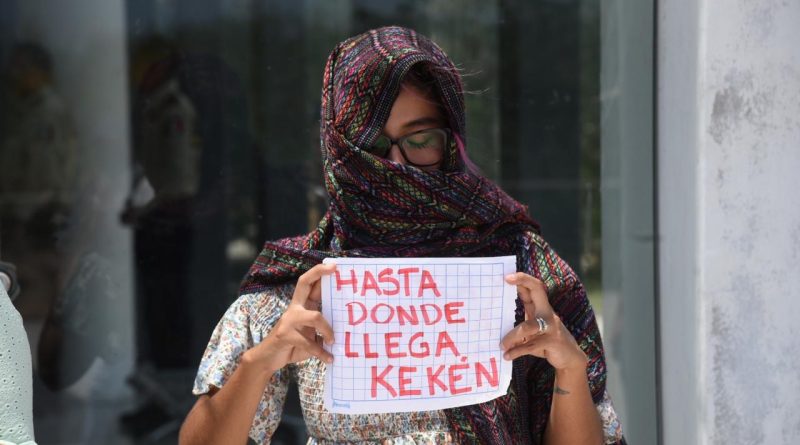 HASTA
DONDE
LLEGA
KEKÉN